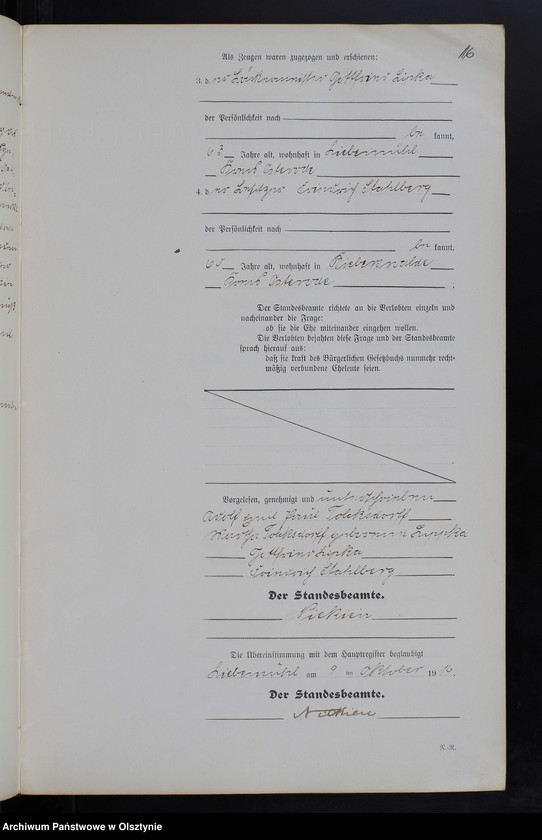 116
Als Zeugen waren zugezogen und erschienen:
3. der Gottfried Lipka
der Persönlichkeit nach
be kannt,
63 Jahre alt, wohnhaft in Liebemühl
Kreis Osterode
4. der Besitzer Heinrich Stahlberg
der Persönlichkeit nach
be kannt,
65 Jahre alt, wohnhaft in Bieberswalde
Kreis Osterode ;
Der Standesbeamte richtete an die Verlobten einzeln und
nacheinander die Frage:
ob sie die Ehe miteinander eingehen wollen.
Die Verlobten bejahten diese Frage und der Standesbeamte
sprach hierauf aus:
daß sie kraft des Bürgerlichen Gesetzbuchs nunmehr recht-
mäßig verbundene Eheleute seien.
Vorgelesen, genehmigt und unterschrieben
Adolf Paul Tolcksdorff
Tolcksdorff geborene Lippka
Gottfried Lipka
Heinrich Stahlberg
Der Standesbeamte.
Die Übereinstimmung mit dem Hauptregister beglaubigt
Liebemühl am 9 ten Oktober 1916.
Der Standesbeamte.
R.-R.
Archiwum Państwowe w Olsztynie